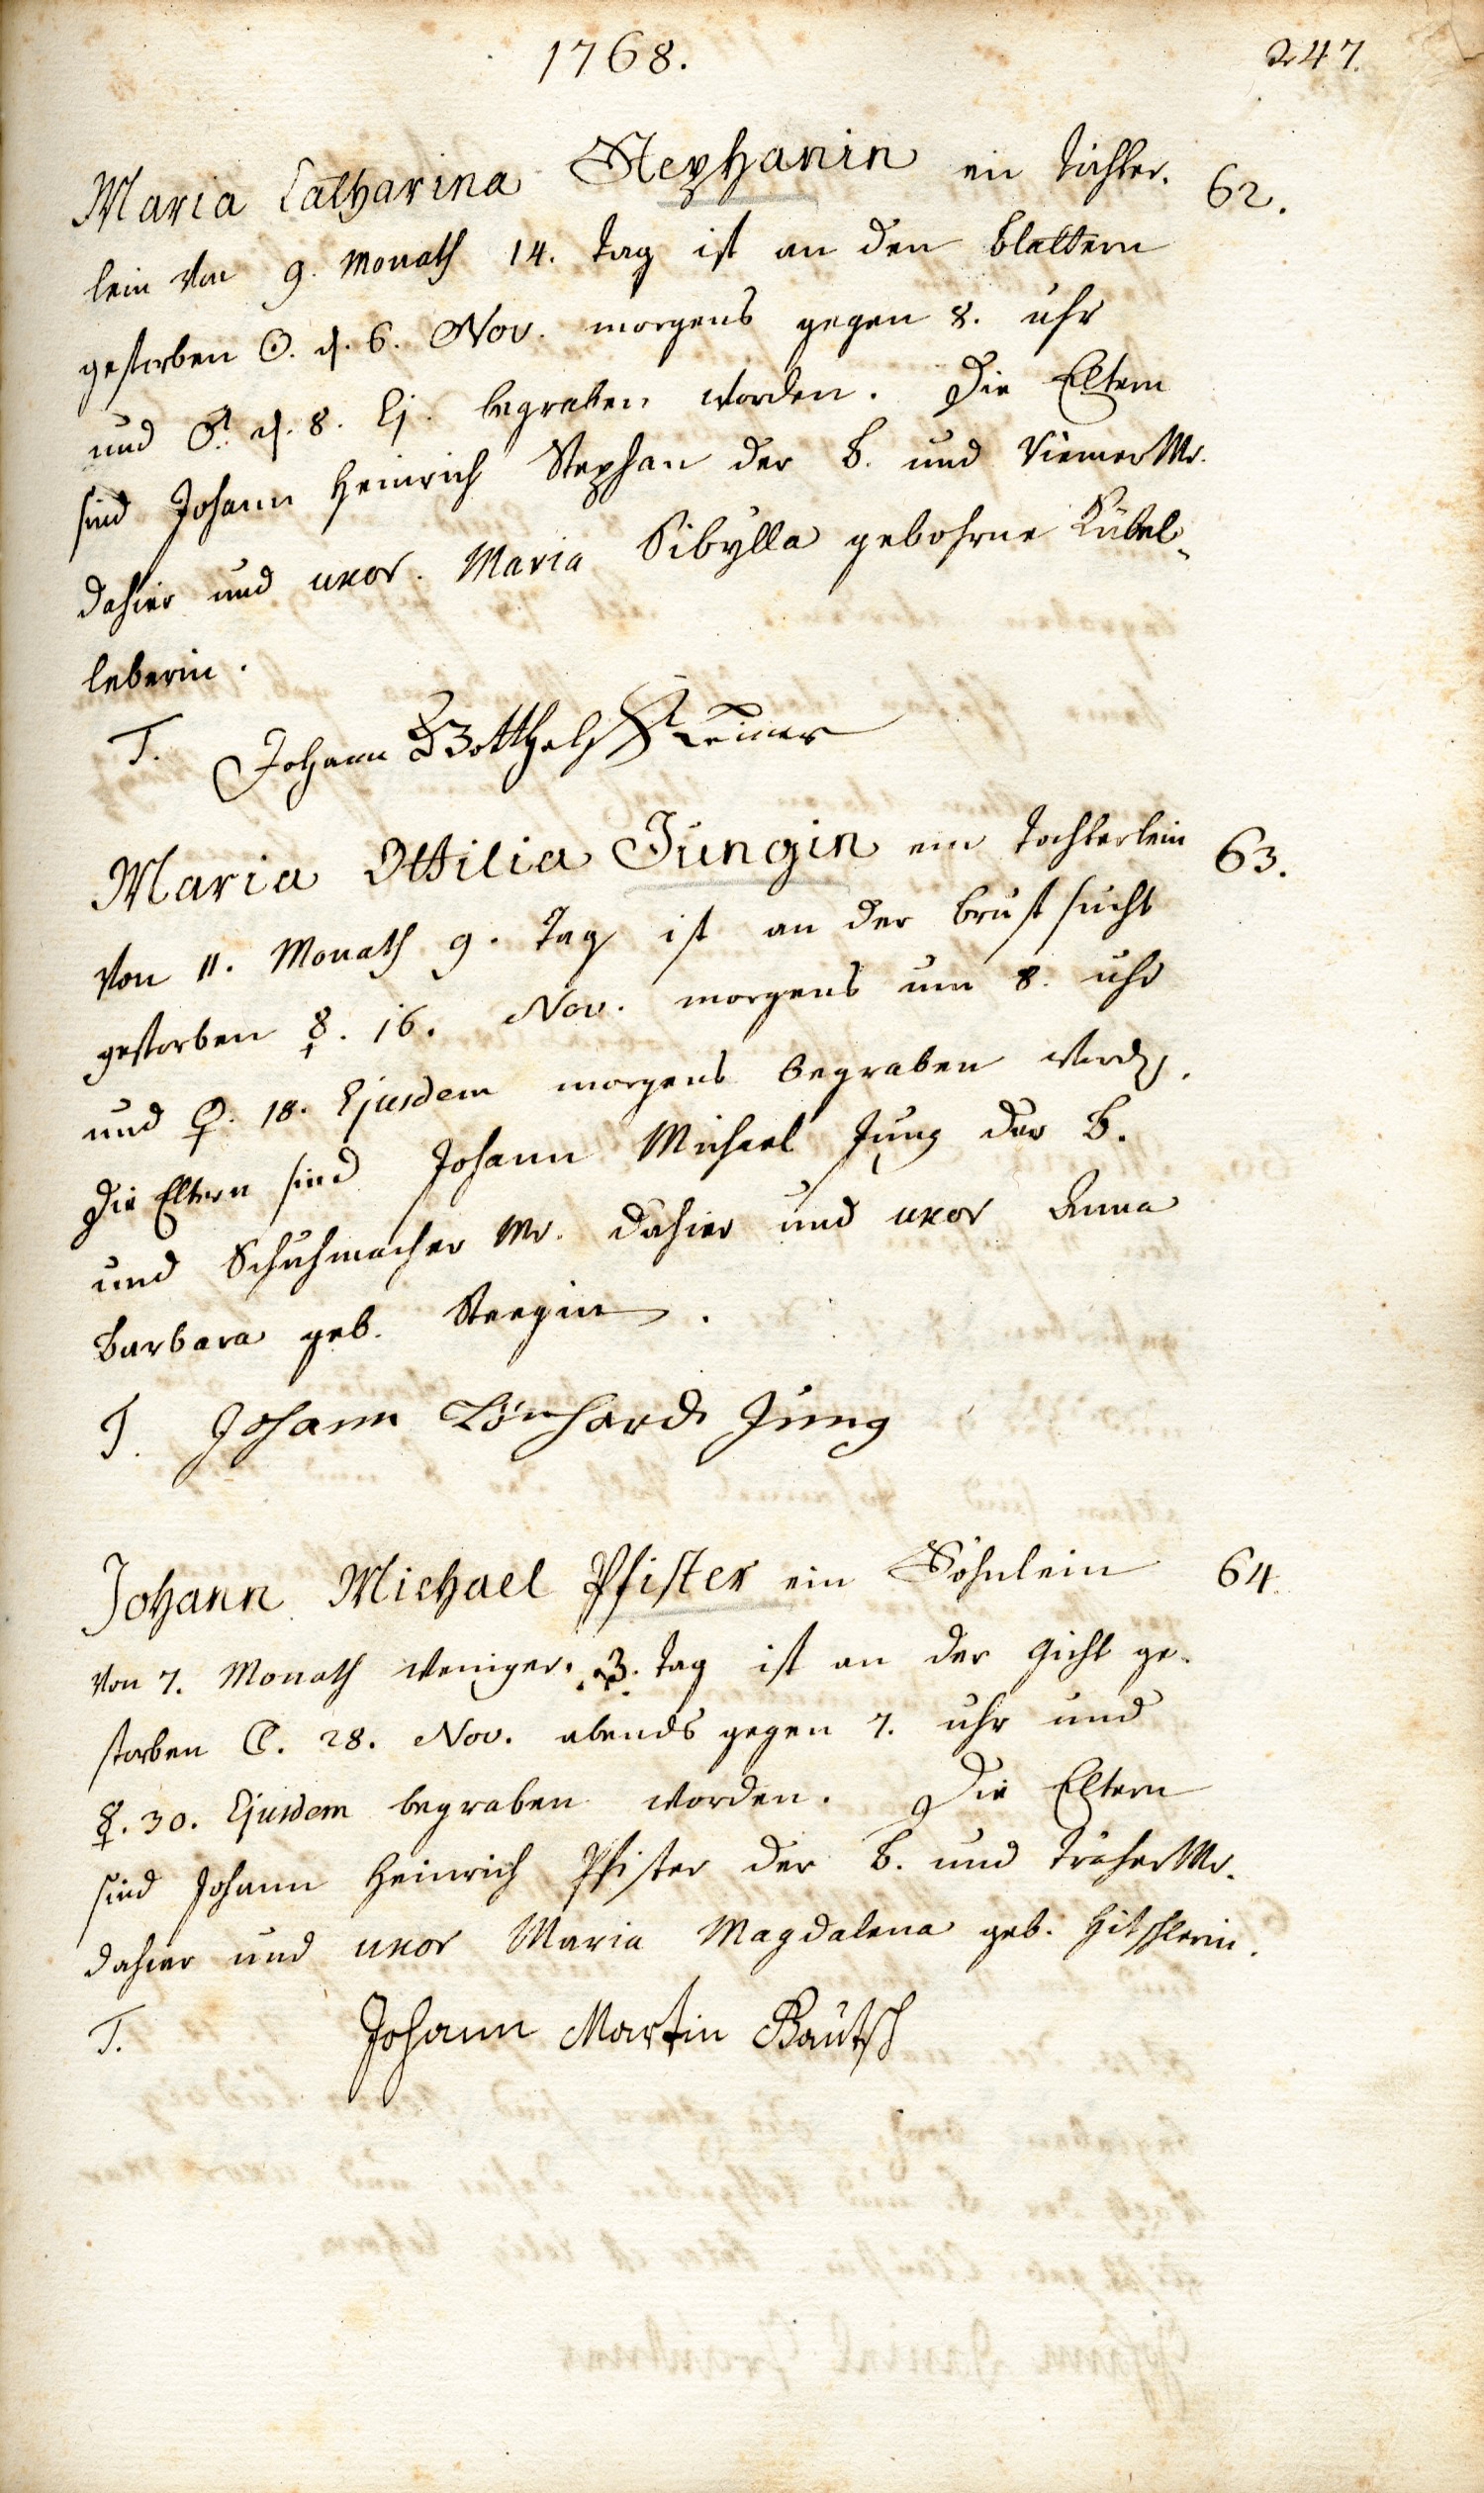 1768.
247.
Maria Catharina Stephanin ein Töchter- 62.
lein von 9. Monath 14. Tag ist an den Blattern
gestorben ☉. d. 6. Nov. morgens gegen 8. uhr
und ♂. d. 8. Ej. begraben worden. Die Eltern
sind Johann Heinrich Stephan der B. und RiemerMr.
dahier und uxor. Maria Sibylla gebohrne Kübel-
leberin.
T. Johann Gotthelf
Maria Ottilia Jungin ein Töchterlein 63.
von 11. Monath 9. Tag ist an der Brustsucht
gestorben ☿. 16. Nov. morgens um 8. uhr
und ♀. 18. Ejusdem morgens begraben word.
Die Eltern sind Johann Michael Jung der B.
und Schuhmacher Mr. dahier und uxor Anna
Barbara geb. Steegin.
T. Johann Lönhard Jung
Johann Michael Pfister ein Söhnlein 64.
von 7. Monath weniger 3. Tag ist an der Gicht ge-
storben ☾. 28. Nov. abends gegen 7. uhr und
☿. 30. Ejusdem begraben worden. Die Eltern
sind Johann Heinrich Pfister der B. und TräherMr.
dahier und uxor Maria Magdalena geb. Hitschlerin.
T. Johann Martin Bautsch